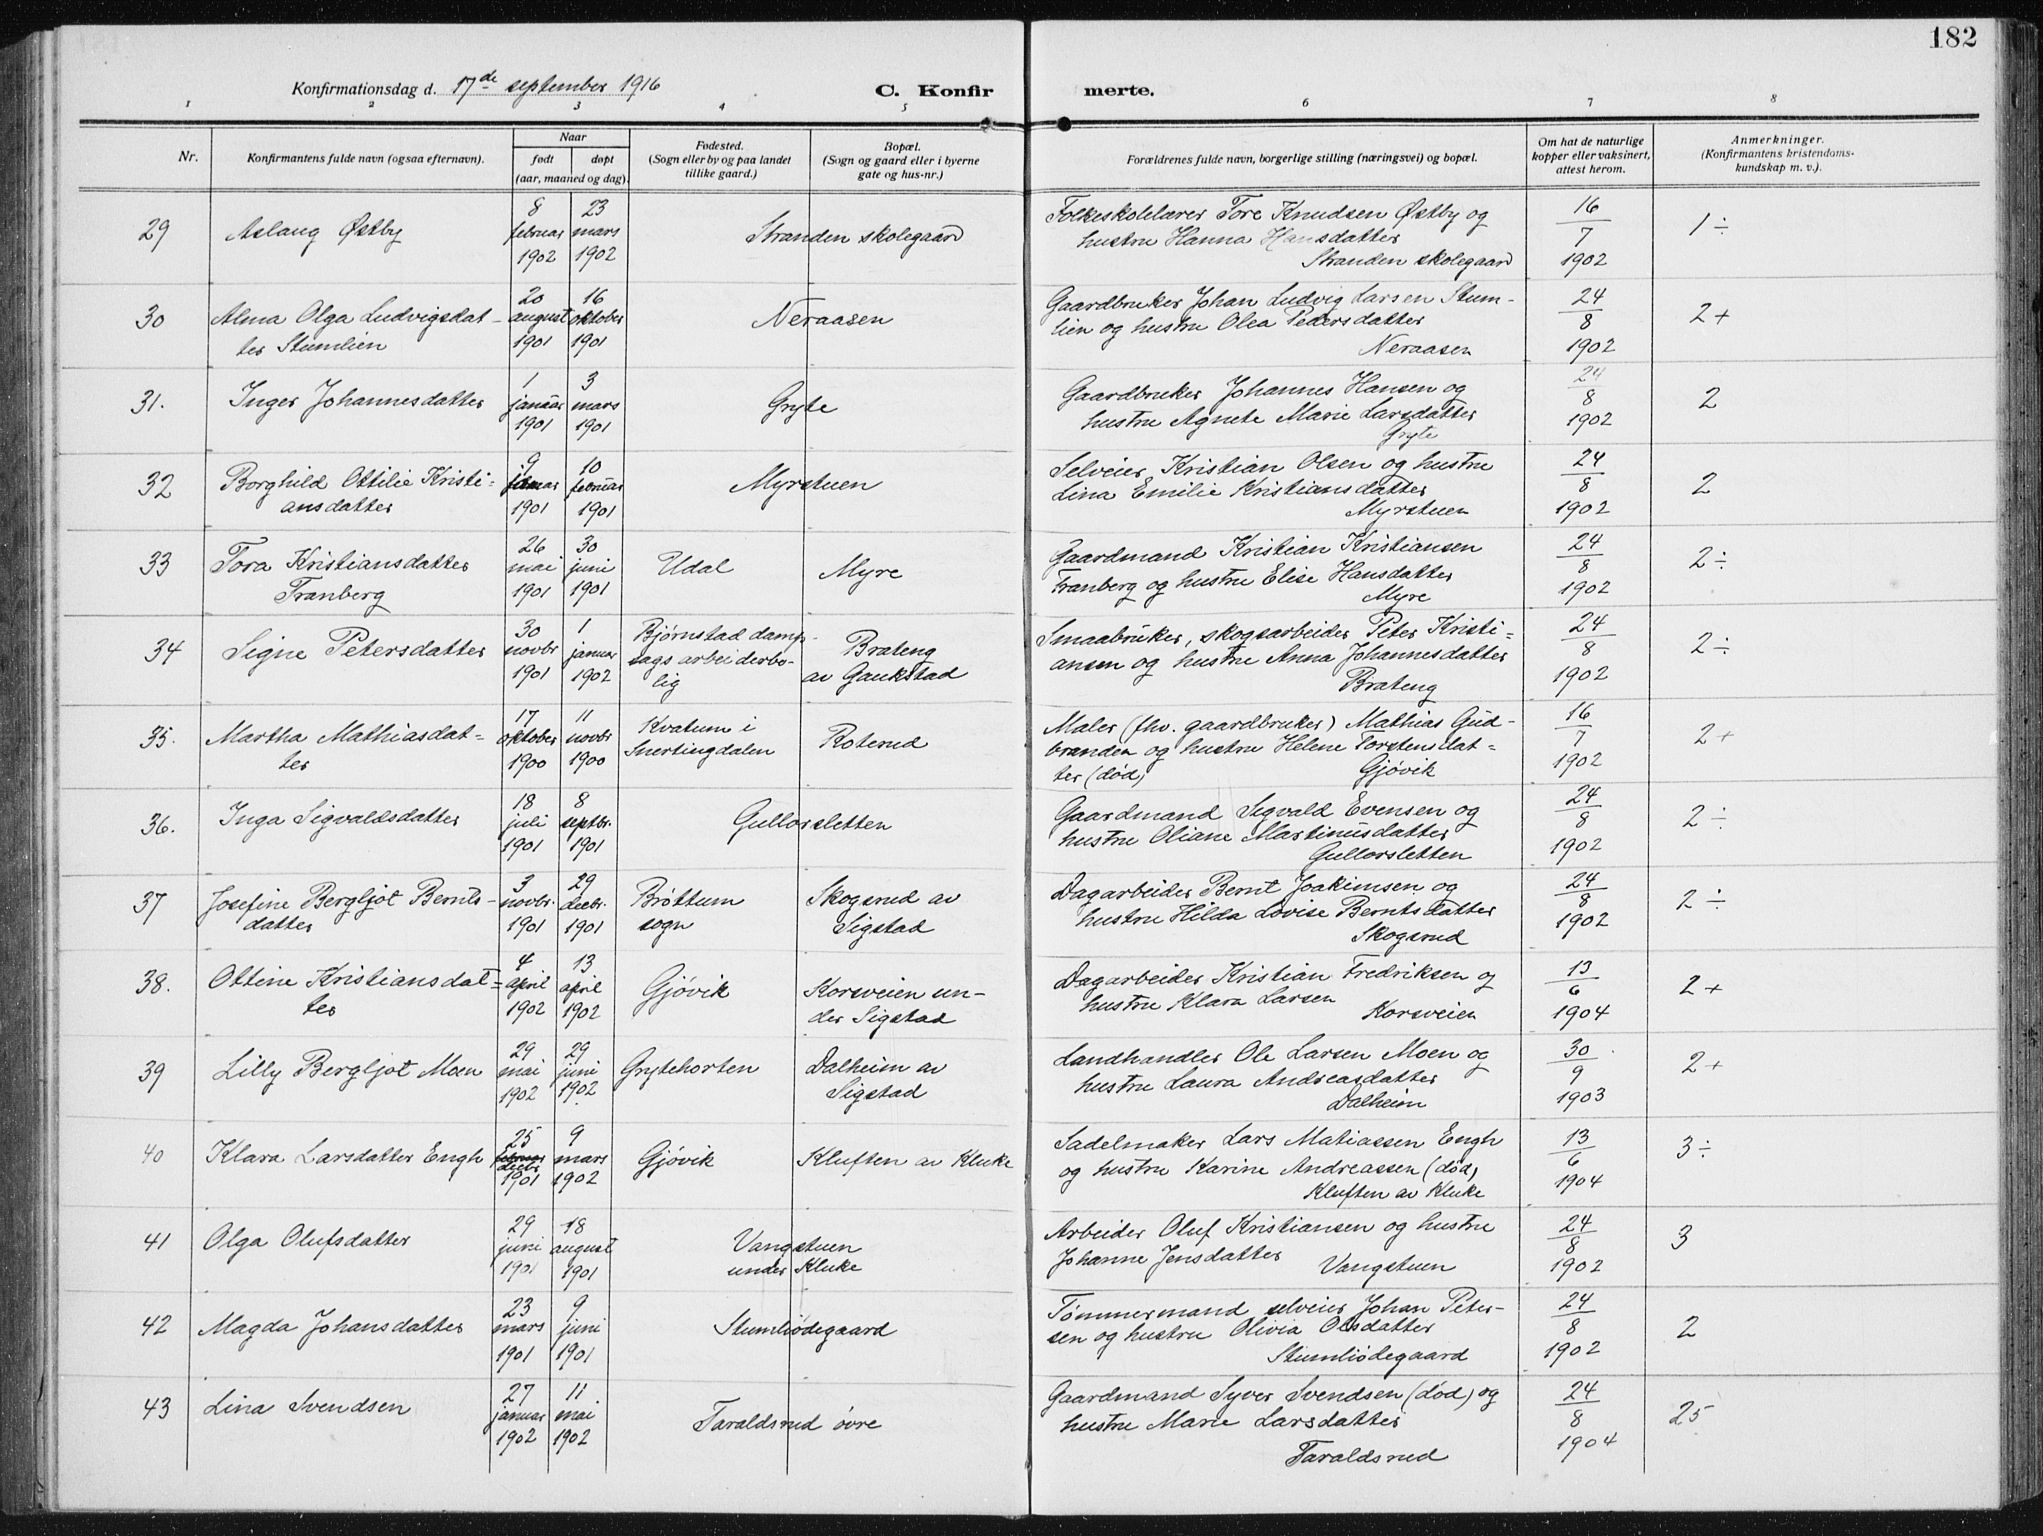 182
Konfirmationsdag d. 17de september 1916
C. Konfirmerte.
1 2 3 4 5 6 7 8
Nr.
Konfirmantens fulde navn (ogsaa efternavn).
Naar
født
døpt
(aar, maaned og dag).
Fødested.
(Sogn eller by og paa landet
tillike gaard.)
Bopæl.
(Sogn og gaard eller i byerne
gate og hus-nr.)
Forældrenes fulde navn, borgerlige stilling (næringsvei) og bopæl.
Om hat de naturlige
kopper eller vaksinert,
attest herom.
Anmerkninger.
(Konfirmantens kristendoms-
kundskap m. v.).
29 Aslaug Østby
8 februar 1902
23 mars 1902
Stranden skolegaard
Folkeskolelærer Tore Knudsen Østby og
hustru Hanna Hansdatter
Stranden skolegaard
16/7 1902
1 ÷
30 Alma Olga Ludvigsdat-
ter Stumlien
20 august 1901
16 oktober 1901
Neraasen
Gaardbruker Johan Ludvig Larsen Stum-
lien og hustru Olea Pedersdatter
Neraasen
24/8 1902
2 +
31. Inger Johannesdatter
1 januar 1901
3 mars 1901
Gryte
Gaardbruker Johannes Hansen og
hustru Agnete Marie Larsdatter
Gryte
24/8 1902
2
32 Borghild Ottilie Kristi=
ansdatter
9 januar 1901
10 februar 1901
Myrstuen
Selveier Kristian Olsen og hustru
Lina Emilie Kristiansdatter
Myrstuen
24/8 1902
2
33 Tora Kristiansdatter
Franberg
26 mai 1901
30 juni 1901
Udal
Myre
Gaardmand Kristian Kristiansen
Franberg og hustru Elise Hansdatter
Myre
24/8 1902
2 ÷
34 Signe Petersdatter
30 novbr 1901
1 januar 1902
Bjørnstad damp-
sags arbeiderbo-
lig
Brateng
av Gaukstad
Smaabruker, skogsarbeider Peter Kristi=
ansen og hustru Anna Johannesdatter
Brateng
24/8 1902
2 ÷
35. Martha Mathiasdat=
ter
17 oktober 1900
11 novbr 1900
Kvatum i
Snertingdalen
Roterud
Maler (fhv. gaardbruker) Mathias Gud-
brandsen og hustru Helene Torstensdat=
ter (død)
Gjøvik
16/7 1902
2 +
36. Inga Sigvaldsdatter
18 juli 1901
8 septbr. 1901
Gullorsletten
Gaardmand Sigvald Evensen og
hustru Oliane Martinusdatter
Gullorsletten
24/8 1902
2 ÷
37 Josefine Bergljot Bernts-
datter
3 novbr. 1901
29 decbr. 1901
Brøttum
sogn
Skogsrud av
Sigstad
Dagarbeider Bernt Joakimsen og
hustru Hilda Lovise Berntsdatter
Skogsrud
24/8 1902
2 ÷
38. Ottine Kristiansdat=
ter
4 april 1902
13 april 1902
Gjøvik
Korsveien un-
der Sigstad
Dagarbeider Kristian Fredriksen og
hustru Klara Larsen
Korsveien
13/6 1904
2 +
39 Lilly Bergljot Moen
29 mai 1902
29 juni 1902
Grytehorten
Dalheim av
Sigstad
Landhandler Ole Larsen Moen og
hustru Laura Andreasdatter
Dalheim
30/9 1903
2 +
40 Klara Larsdatter Engh
25 februar decbr 1901
9 mars 1902
Gjøvik
Kluften av Kluke
Sadelmaker Lars Matiassen Engh
og hustru Karine Andreassen (død)
Kluften av Kluke
13/6 1904
3 ÷
41 Olga Olufsdatter
29 juni 1901
18 august 1901
Vangstuen
under Kluke
Arbeider Oluf Kristiansen og hustru
Johanne Jensdatter
Vangstuen
24/8 1902
3
42 Magda Johansdatter
23 mars 1901
9 juni 1901
Stumliødegaard
Tømmermand selveier Johan Peter-
sen og hustru Olivia Olsdatter
Stumliødegaard
24/8 1902
2
43 Lina Svendsen
27 januar 1902
11 mai 1902
Taraldsrud øvre
Gaardmand Syver Svendsen (død) og
hustru Marie Larsdatter
Taraldsrud
24/8 1904
25